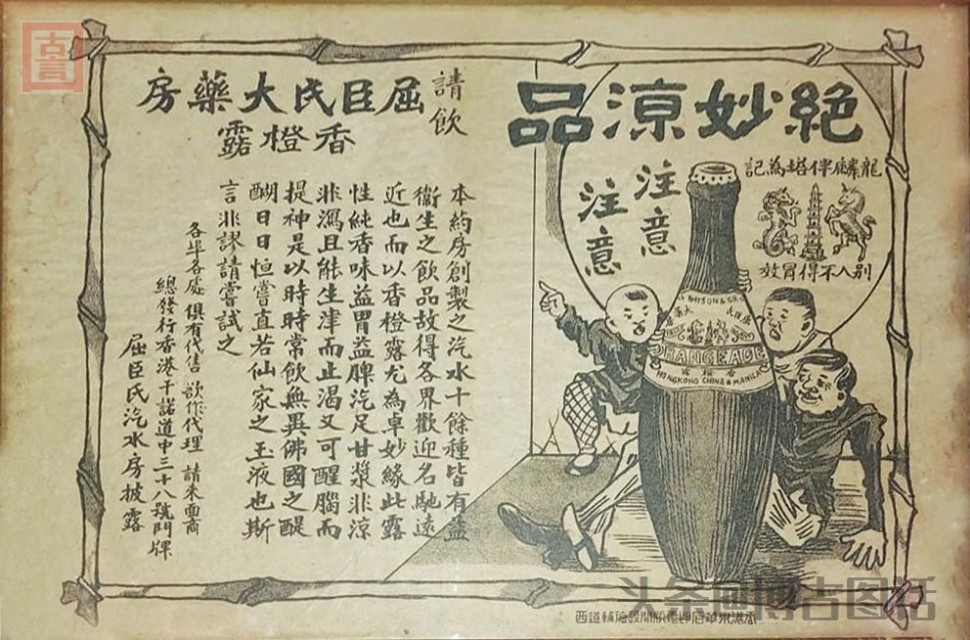 絕妙涼品
龍麟伴塔為記
別人不得冒效
注意
注意
WATSON & Co.
屈臣氏大藥房
ORANGEADE
香橙露
HONGKONG CHINA & MANILA
請飲
屈臣氏大藥房
香橙露
本葯房創製之汽水十餘種皆有益
衛生之飲品故得各界歡迎名馳遠
近也而以香橙露尤為卓妙緣此露
性純香味益胃益脾汽足甘漿非涼
非瀉且能生津而止渴又可醒腦而
提神是以時時常飲無異佛國之醍
醐日日恒嘗直若仙家之玉液也斯
言非謬請嘗試之
各埠各處俱有代售 欲作代理 請來面商
總發行香港干諾道中三十八號門牌
屈臣氏汽水房披露
头条@博古图话